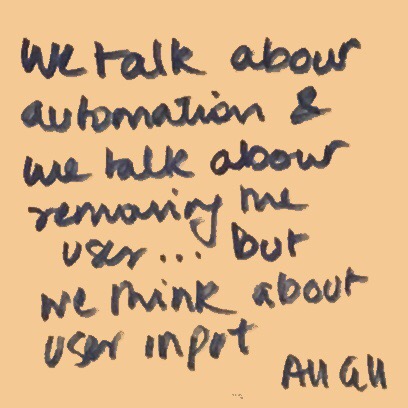 We talk about
automation &
we talk about
removing the
user... but
we think about
user input